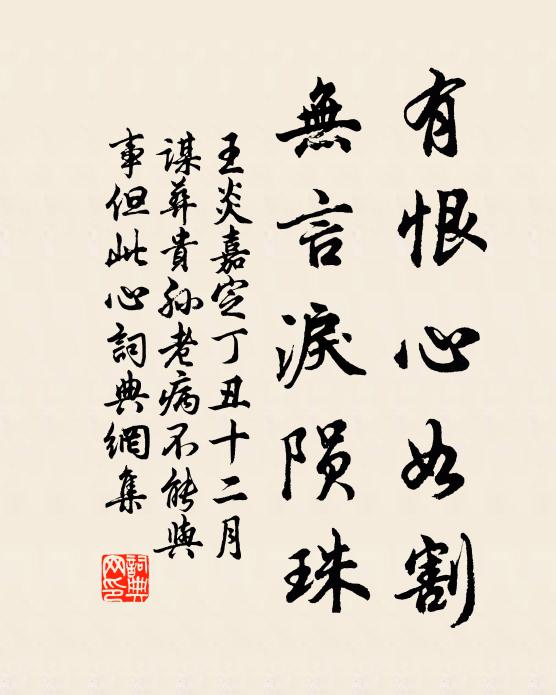 有恨心如割
無言淚隕珠
王炎嘉定丁丑十二月
謀葬貴孫老病不能與
事但此心詞典網集
詞典
网印